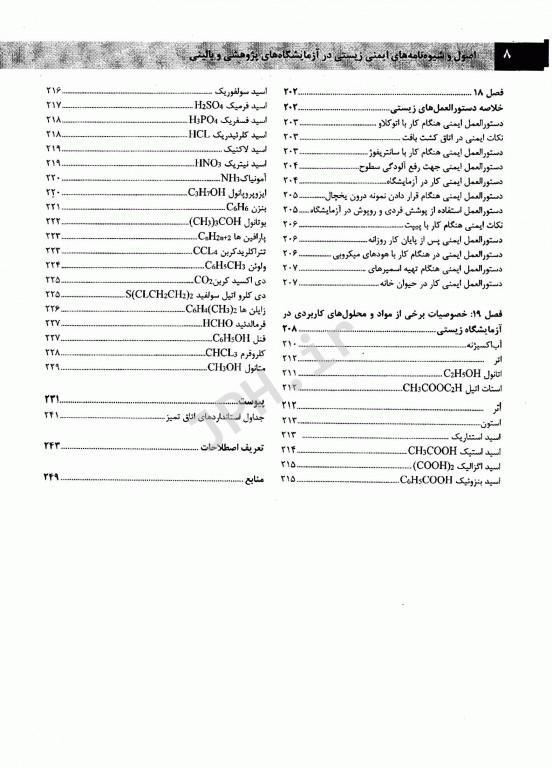 ۸ اصول و شیوه‌نامه‌های ایمنی زیستی در آزمایشگاه‌های پژوهشی و بالینی
فصل ۱۸ ........ ۲۰۲
خلاصه دستورالعمل‌های زیستی ........ ۲۰۲
دستورالعمل ایمنی هنگام کار با اتوکلاو ........ ۲۰۳
نکات ایمنی در اتاق کشت بافت ........ ۲۰۳
دستورالعمل ایمنی هنگام کار با سانتریفوژ ........ ۲۰۳
دستورالعمل ایمنی جهت رفع آلودگی سطوح ........ ۲۰۴
دستورالعمل ایمنی کار در آزمایشگاه ........ ۲۰۴
دستورالعمل ایمنی هنگام قرار دادن نمونه درون یخچال ........ ۲۰۵
دستورالعمل استفاده از پوشش فردی و روپوش در آزمایشگاه ........ ۲۰۵
نکات ایمنی هنگام کار با پیپت ........ ۲۰۶
دستورالعمل ایمنی پس از پایان کار روزانه ........ ۲۰۶
دستورالعمل ایمنی در هنگام کار با هودهای میکروبی ........ ۲۰۶
دستورالعمل ایمنی هنگام تهیه اسمیرهای ........ ۲۰۷
دستورالعمل ایمنی کار در حیوان خانه ........ ۲۰۷
فصل ۱۹: خصوصیات برخی از مواد و محلول‌های کاربردی در
آزمایشگاه زیستی ........ ۲۰۸
آب‌اکسیژنه ........ ۲۱۰
اتر ........ ۲۱۲
اتانول C2H5OH ........ ۲۱۱
استات اتیل CH3COOC2H ........ ۲۱۲
اتر ........ ۲۱۲
استون ........ ۲۱۳
اسید استئاریک ........ ۲۱۳
اسید استیک CH3COOH ........ ۲۱۴
اسید اگزالیک (COOH)2 ........ ۲۱۵
اسید بنزوئیک C6H5COOH ........ ۲۱۵
اسید سولفوریک ........ ۲۱۶
اسید فرمیک H2SO4 ........ ۲۱۷
اسید فسفریک H3PO4 ........ ۲۱۸
اسید کلرئیدریک HCL ........ ۲۱۸
اسید لاکتیک ........ ۲۱۹
اسید نیتریک HNO3 ........ ۲۱۹
آمونیاک NH3 ........ ۲۲۰
ایزوپروپانول C3H7OH ........ ۲۲۰
بنزن C6H6 ........ ۲۲۱
بوتانول (CH3)3COH ........ ۲۲۲
پارافین ها CnH2n+2 ........ ۲۲۳
تتراکلریدکربن CCL4 ........ ۲۲۳
ولوئن C6H5CH3 ........ ۲۲۴
دی اکسید کربن CO2 ........ ۲۲۵
دی کلرو اتیل سولفید S(CLCH2CH2)2 ........ ۲۲۵
زایلن ها C6H4(CH3)2 ........ ۲۲۶
فرمالدئید HCHO ........ ۲۲۷
فنل C6H5OH ........ ۲۲۷
کلروفرم CHCL3 ........ ۲۲۸
متانول CH3OH ........ ۲۲۹
پیوست ........ ۲۳۱
جداول استانداردهای اتاق تمیز ........ ۲۴۱
تعریف اصطلاحات ........ ۲۴۳
منابع ........ ۲۴۹
JRH.ir